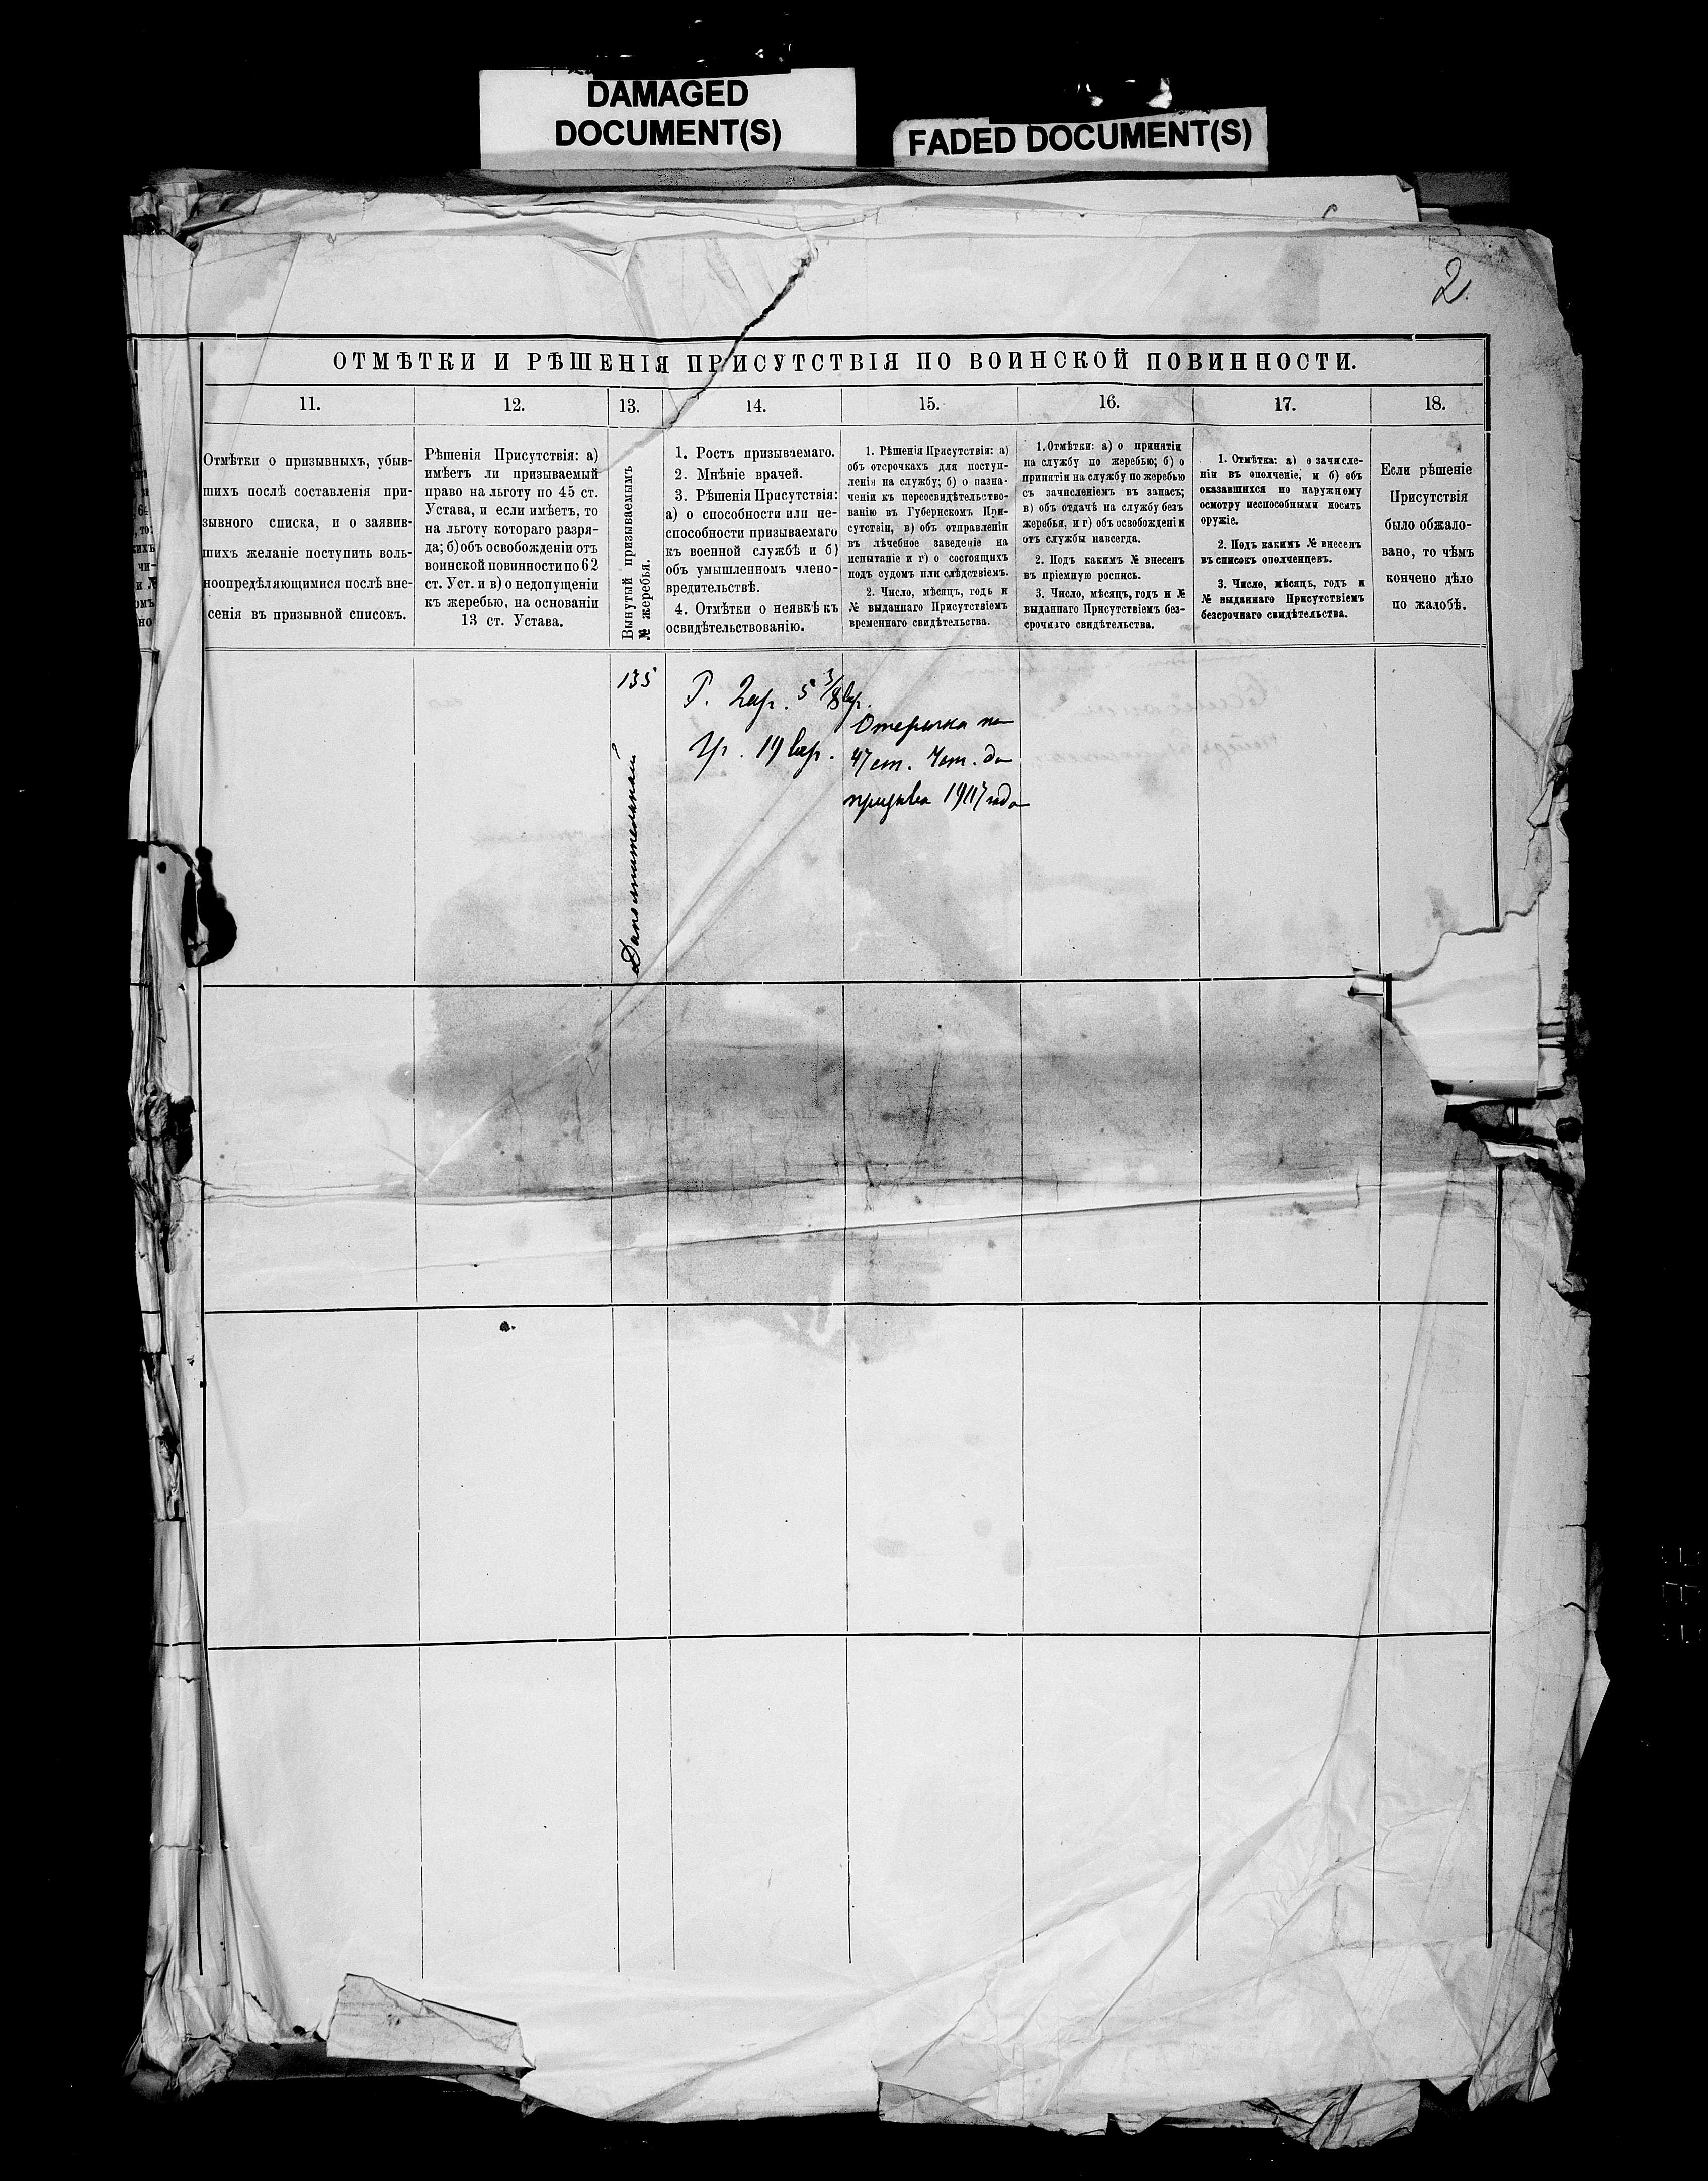 DAMAGED
DOCUMENT(S)
FADED DOCUMENT(S)
2
ОТМѢТКИ И РѢШЕНІЯ ПРИСУТСТВІЯ ПО ВОИНСКОЙ ПОВИННОСТИ.
11.
Отмѣтки о призывныхъ, убыв-
шихъ послѣ составленія при-
зывного списка, и о заявив-
шихъ желаніе поступить воль-
ноопредѣляющимися послѣ вне-
сенія въ призывной списокъ.
12.
Рѣшенія Присутствія: а)
имѣетъ ли призываемый
право на льготу по 45 ст.
Устава, и если имѣетъ, то
на льготу котораго разря-
да; б) объ освобожденіи отъ
воинской повинности по 62
ст. Уст. и в) о недопущеніи
къ жеребью, на основаніи
13 ст. Устава.
13.
Вынутый призываемымъ
№ жеребья.
14.
1. Ростъ призываемаго.
2. Мнѣніе врачей.
3. Рѣшенія Присутствія:
а) о способности или не-
способности призываемаго
къ военной службѣ и б)
объ умышленномъ члено-
вредительствѣ.
4. Отмѣтки о неявкѣ къ
освидѣтельствованію.
15.
1. Рѣшенія Присутствія: а)
объ отсрочкахъ для поступ-
ленія на службу; б) о назна-
ченіи къ переосвидѣтельство-
ванію въ Губернскомъ При-
сутствіи, в) объ отправленіи
въ лѣчебное заведеніе на
испытаніе и г) о состоящихъ
подъ судомъ или слѣдствіемъ.
2. Число, мѣсяцъ, годъ и
№ выданнаго Присутствіемъ
временнаго свидѣтельства.
16.
1. Отмѣтки: а) о принятіи
на службу по жеребью; б) о
принятіи на службу по жеребью
съ зачисленіемъ въ запасъ;
в) объ отдачѣ на службу безъ
жеребья, и г) объ освобожденіи
отъ службы навсегда.
2. Подъ какимъ № внесенъ
въ пріемную роспись.
3. Число, мѣсяцъ, годъ и №
выданнаго Присутствіемъ без-
срочнаго свидѣтельства.
17.
1. Отмѣтка: а) о зачисле-
ніи въ ополченіе, и б) объ
оказавшихся по наружному
осмотру неспособными носить
оружіе.
2. Подъ какимъ № внесенъ
въ списокъ ополченцевъ.
3. Число, мѣсяцъ, годъ и
№ выданнаго Присутствіемъ
безсрочнаго свидѣтельства.
18.
Если рѣшеніе
Присутствія
было обжало-
вано, то чѣмъ
кончено дѣло
по жалобѣ.
135
Дополнительный
Р. 2 ар. 5 3/8 вр.
Гр. 19 вер.
Отсрочка по
47 ст. Уст. до
призыва 1907 года